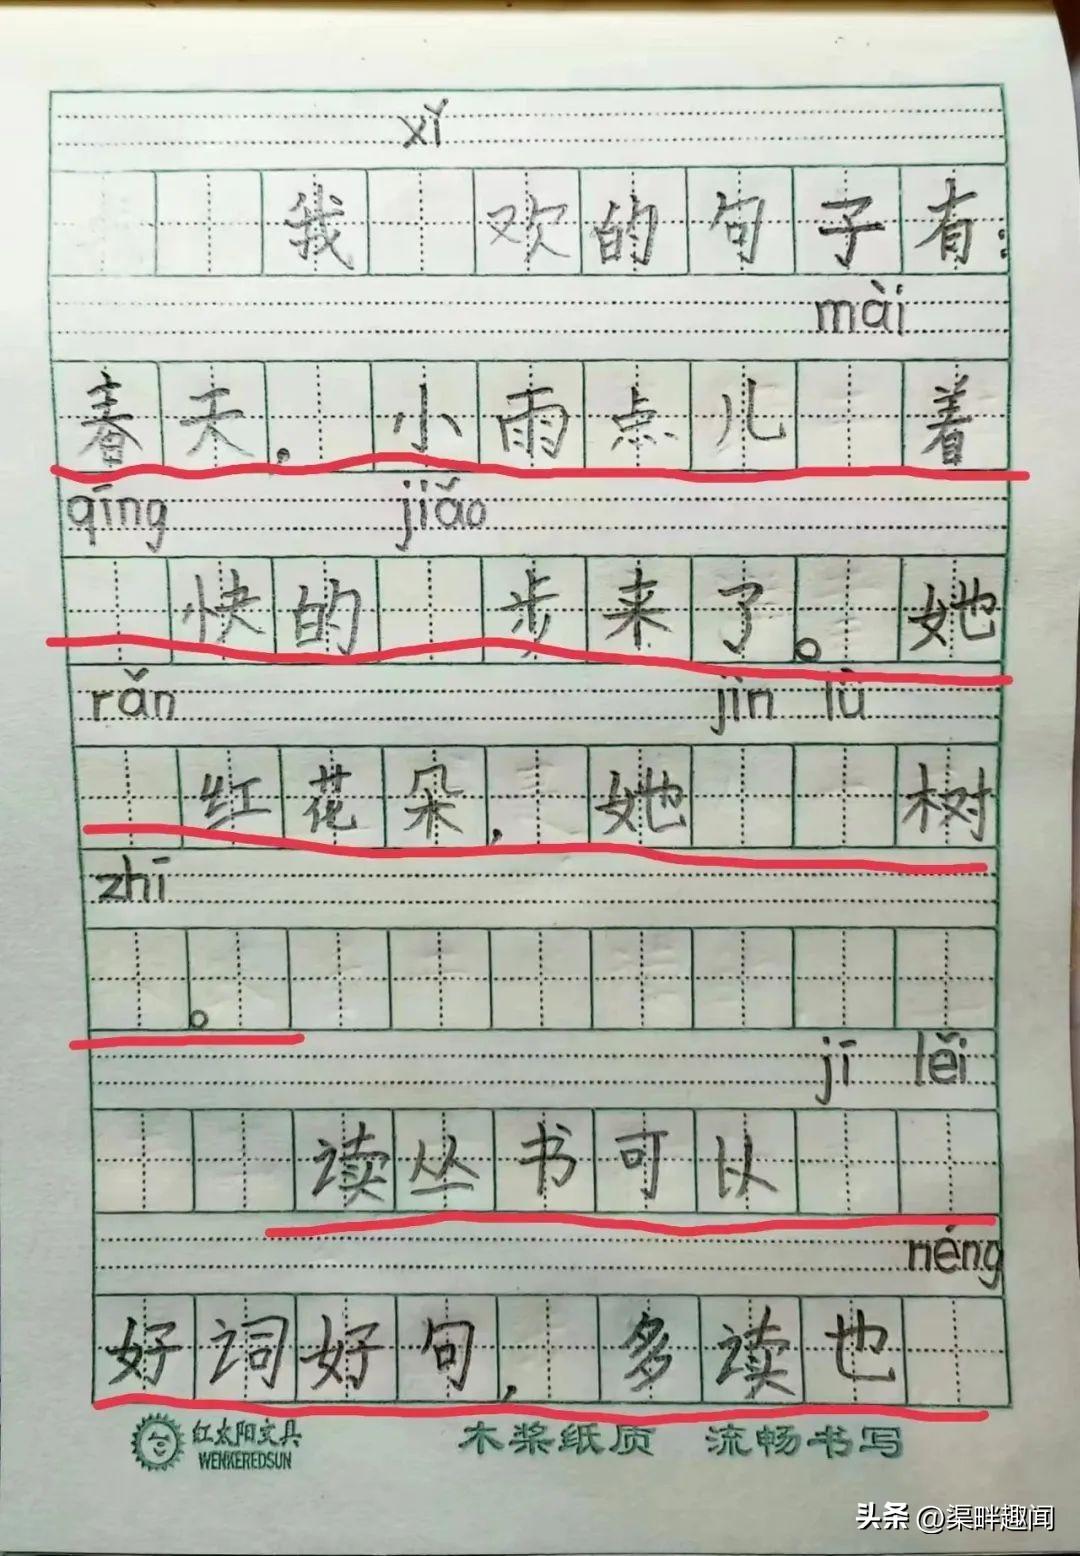 xǐ
我 欢的句子有:
mài
春天,小雨点儿 着
qīng jiǎo
快的 步来了。她
rǎn jìn lǜ
红花朵,她 树
zhī
。
jī lěi
读丛书可以
néng
好词好句,多读也
红太阳文具
WENKEREDSUN
木桨纸质 流畅书写
头条 @渠畔趣闻